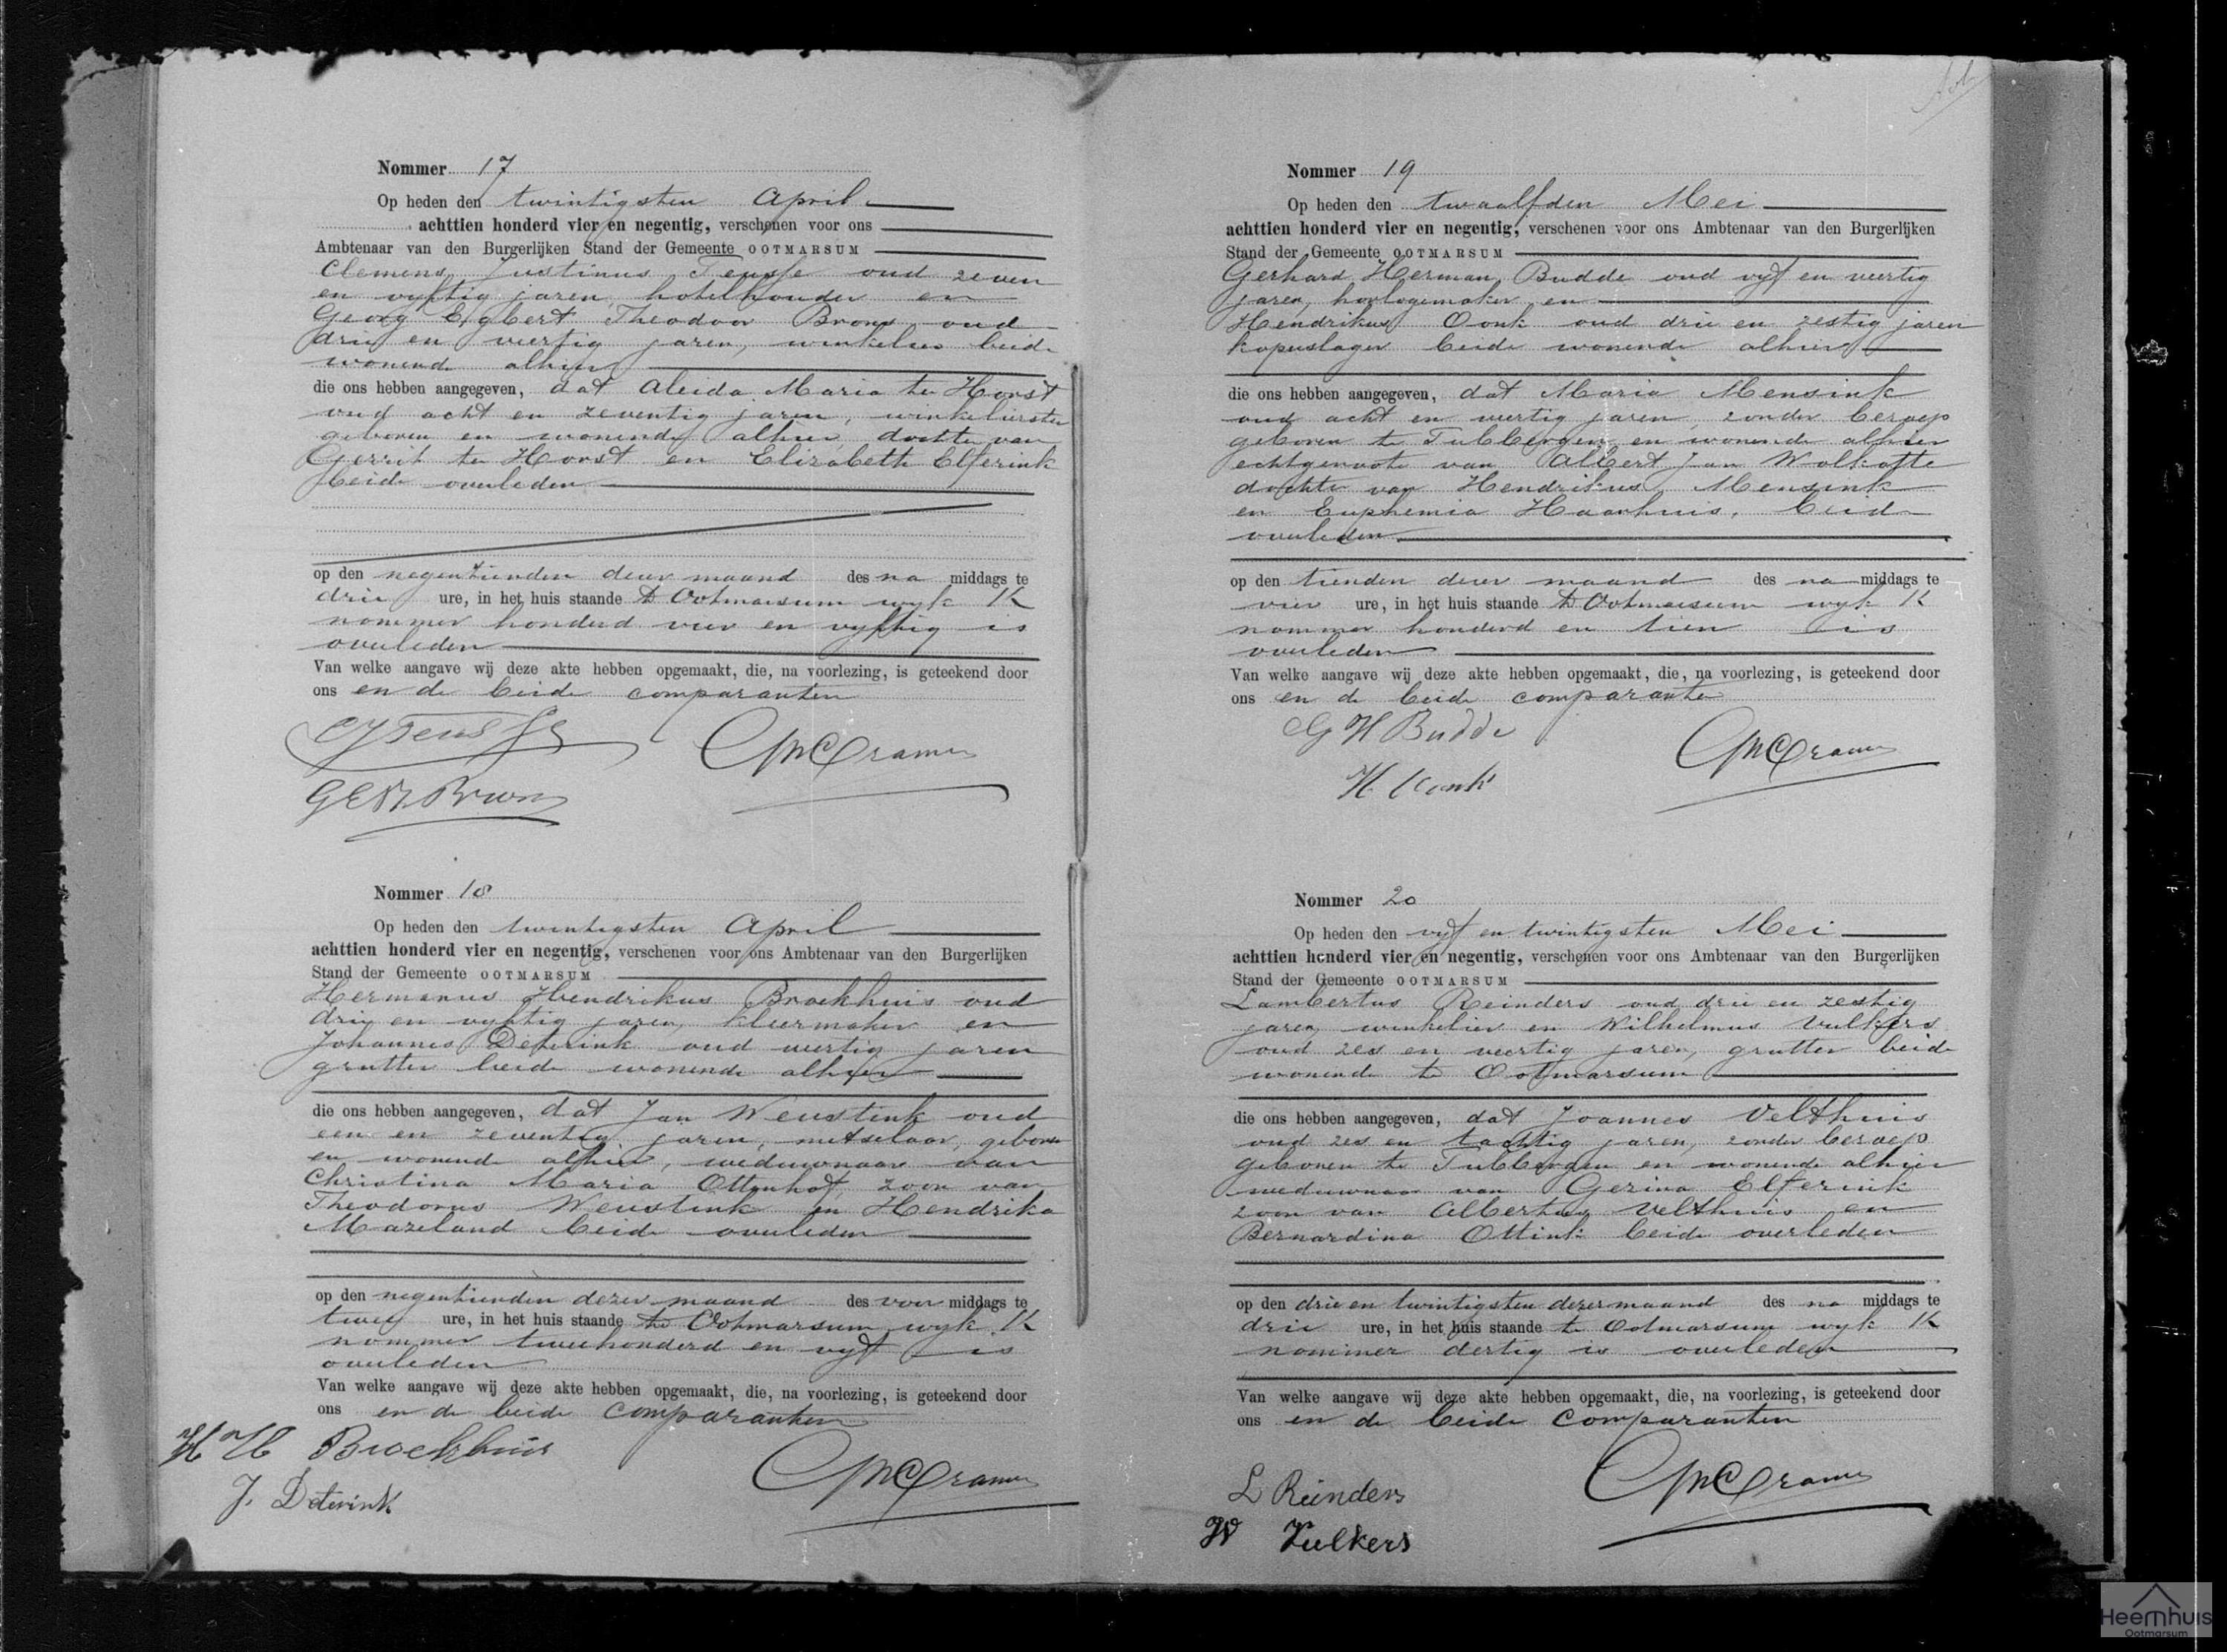 Nommer 17
Op heden den twintigsten April
achttien honderd vier en negentig, verschenen voor ons
Ambtenaar van den Burgerlijken Stand der Gemeente OOTMARSUM
Clemens Justinus Teusse oud zeven
en vyftig jaren, hotelhouder en
Georg Egbert Theodoor Brons oud
drie en veertig jaren, winkelier beide
wonende alhier
die ons hebben aangegeven, dat Aleida Maria ter Horst
oud acht en zeventig jaren, winkelierster
geboren en wonende alhier, dochter van
Gerrit ter Horst en Elizabeth Elferink
beide overleden
op den negentienden dezer maand des na middags te
drie ure, in het huis staande te Ootmarsum wyk K
nommer honderd vier en vyftig is
overleden
Van welke aangave wij deze akte hebben opgemaakt, die, na voorlezing, is geteekend door
ons en de beide comparanten
Cramer
Nommer 18
Op heden den twintigsten April
achttien honderd vier en negentig, verschenen voor ons Ambtenaar van den Burgerlijken
Stand der Gemeente OOTMARSUM
Hermanus Hendrikus Broekhuis oud
drie en vyftig jaren, kleermaker en
Johannes Deterink oud veertig jaren
grutter beide wonende alhier
die ons hebben aangegeven, dat Jan Weustink oud
een en zeventig jaren, metselaar, geboren
en wonende alhier, weduwnaar van
Christina Maria Ottenhof, zoon van
Theodorus Weustink en Hendrika
Mazeland beide overleden
op den negentienden dezer maand des voor middags te
twee ure, in het huis staande te Ootmarsum wyk K
nommer tweehonderd en vyf is
overleden
Van welke aangave wij deze akte hebben opgemaakt, die, na voorlezing, is geteekend door
ons en de beide comparanten
H H Broekhuis
J. Deterink
Cramer
Nommer 19
Op heden den twaalfden Mei
achttien honderd vier en negentig, verschenen voor ons Ambtenaar van den Burgerlijken
Stand der Gemeente OOTMARSUM
Gerhard Herman Budde oud vyf en veertig
jaren, horlogemaker en
Hendrikus Oonk oud drie en zestig jaren
koperslager beide wonende alhier
die ons hebben aangegeven, dat Maria Mensink
oud acht en veertig jaren, zonder beroep
geboren te Tubbergen en wonende alhier
echtgenoote van Albert Jan Wolkotte
dochter van Hendrikus Mensink
en Euphemia Haarhuis, beide
overleden
op den tienden dezer maand des na middags te
vier ure, in het huis staande te Ootmarsum wyk K
nommer honderd en tien is
overleden
Van welke aangave wij deze akte hebben opgemaakt, die, na voorlezing, is geteekend door
ons en de beide comparanten
G H Budde
H Oonk
Cramer
Nommer 20
Op heden den vyf en twintigsten Mei
achttien honderd vier en negentig, verschenen voor ons Ambtenaar van den Burgerlijken
Stand der Gemeente OOTMARSUM
Lambertus Reinders oud drie en zestig
jaren, winkelier en Wilhelmus Vulkers
oud zes en veertig jaren, grutter beide
wonende te Ootmarsum
die ons hebben aangegeven, dat Joannes Velthuis
oud zes en tachtig jaren, zonder beroep
geboren te Tubbergen en wonende alhier
weduwnaar van Gerina Elferink
zoon van Albertus Velthuis en
Bernardina Ottink beide overleden
op den drie en twintigsten dezer maand des na middags te
drie ure, in het huis staande te Ootmarsum wyk K
nommer dertig is overleden
Van welke aangave wij deze akte hebben opgemaakt, die, na voorlezing, is geteekend door
ons en de beide comparanten
L Reinders
W Vulkers
Cramer
Heemhuis
Ootmarsum